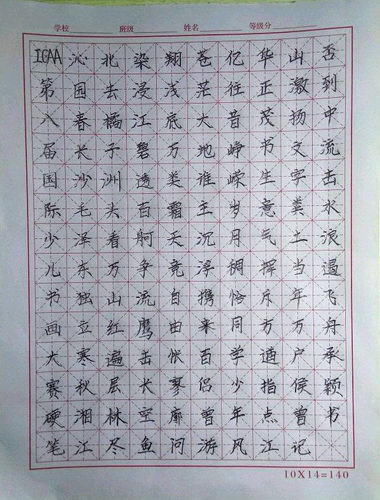 学校 班级 姓名 等级分
ICAA第八届国际少儿书画大赛硬笔
沁园春长沙毛泽东独立寒秋湘江
北去橘子洲头看万山红遍层林尽
染浸江碧透百舸争流鹰击长空鱼
翔浅底万类霜天竞自由怅寥廓问
苍茫大地谁主沉浮携来百侣曾游
亿往昔峥嵘岁月稠恰同学少年风
华正茂书生意气挥斥方遒指点江
山激扬文字粪土当年万户侯曾记
否到中流击水浪遏飞舟承颖书
10X14=140